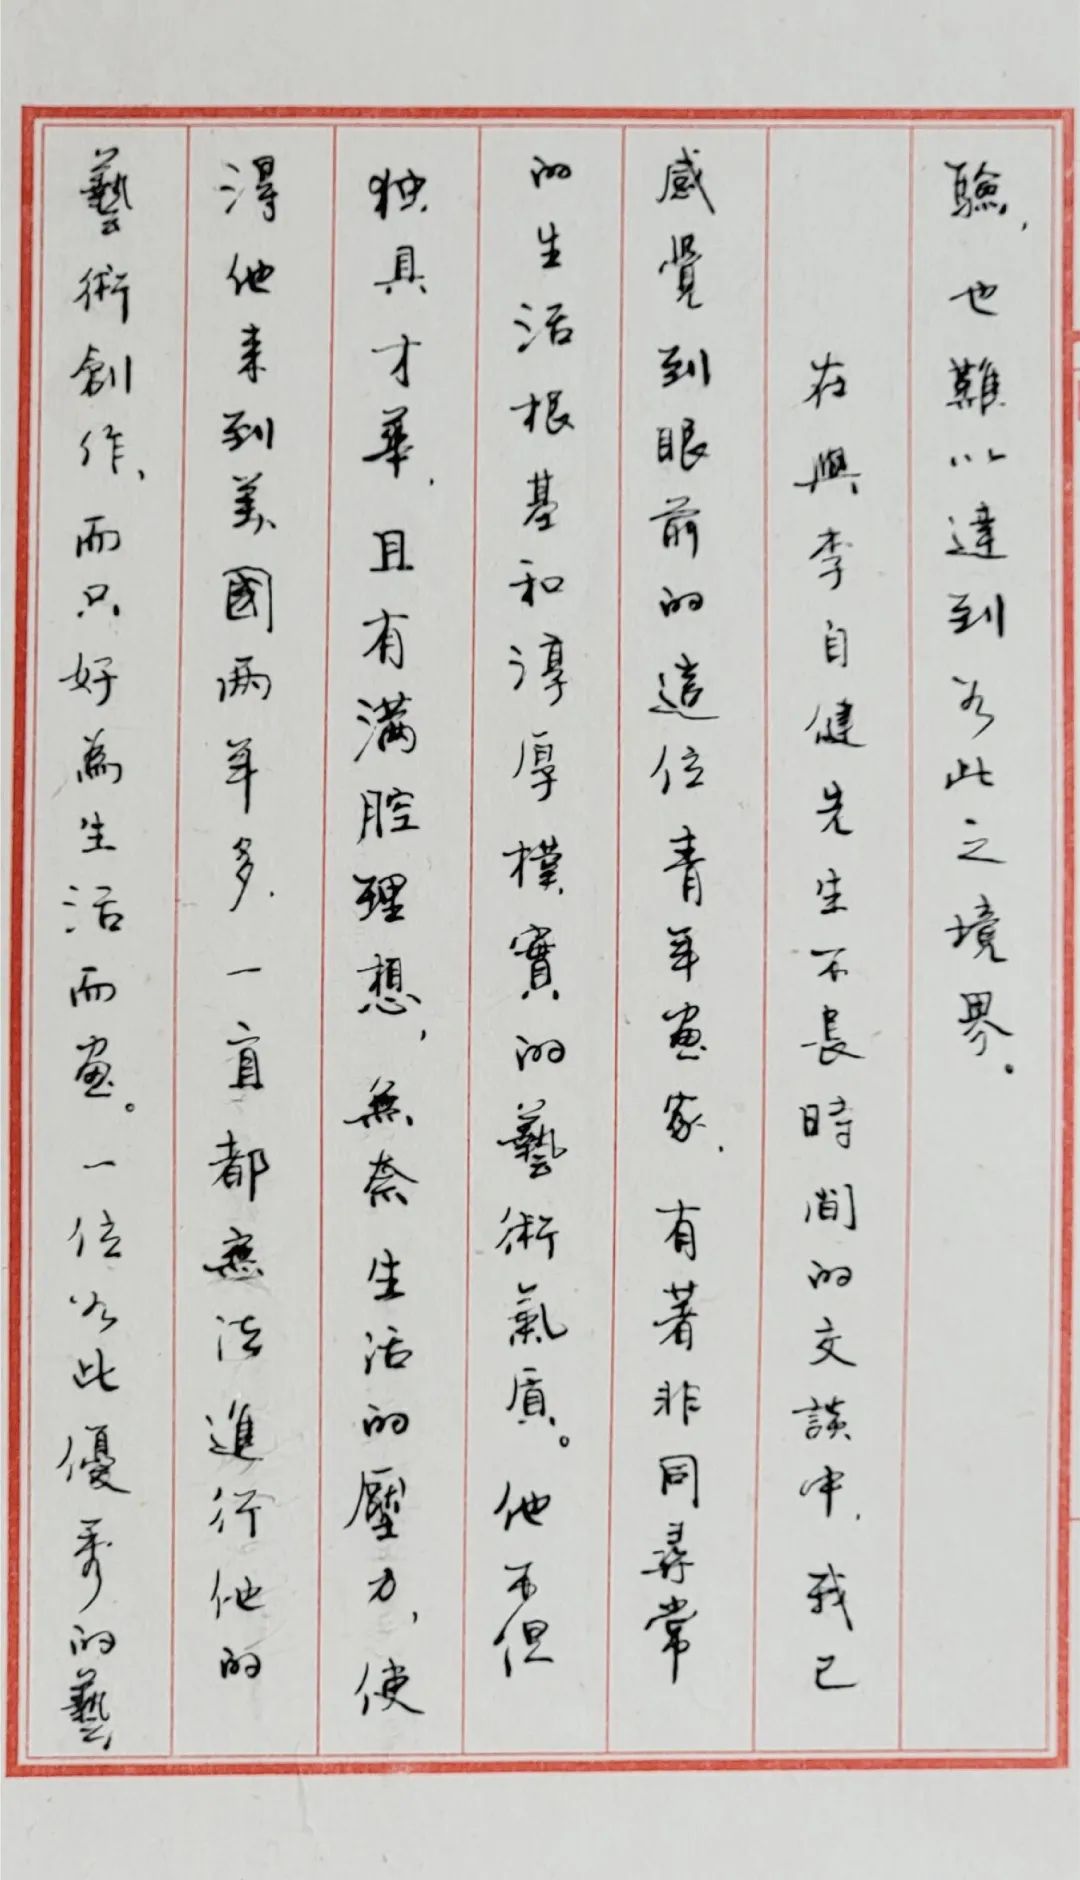 驗,也難以達到如此之境界。
在與李自健先生不長時間的交談中,我已
感覺到眼前的這位青年畫家,有著非同尋常
的生活根基和淳厚樸實的藝術氣质。他不但
独具才華,且有滿腔理想,無奈生活的壓力,使
得他来到美國两年多,一直都無法進行他的
藝術創作,而只好為生活而畫。一位如此優秀的藝